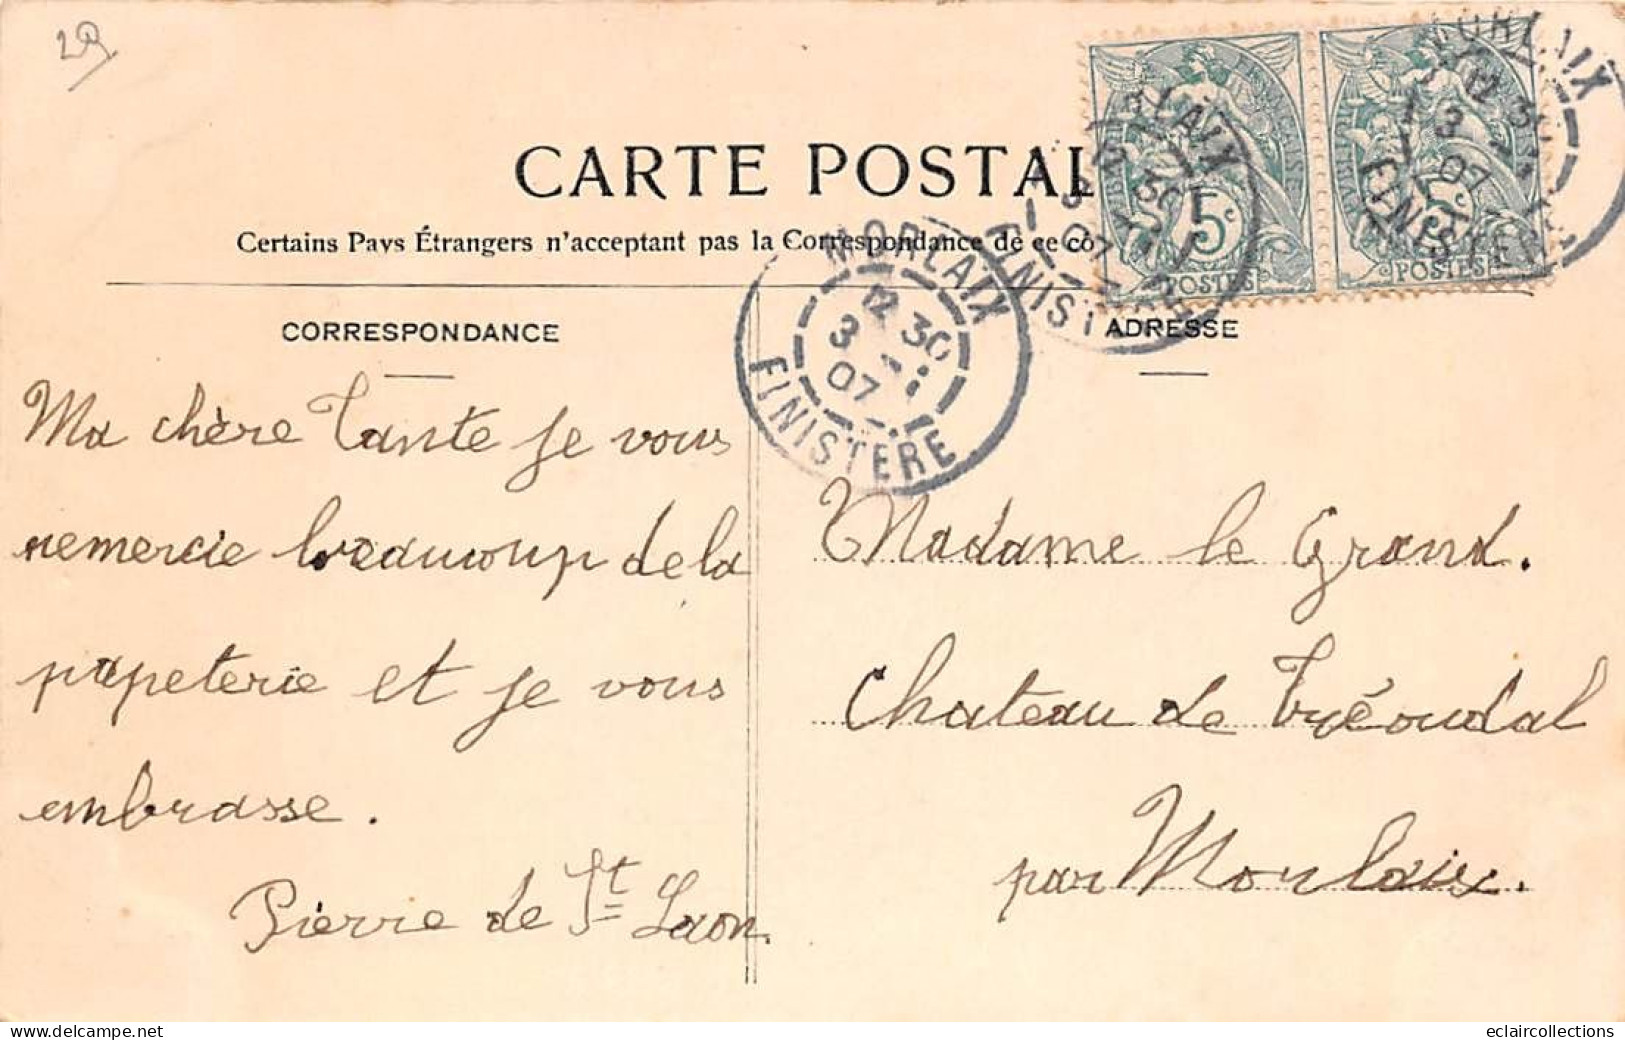 29
CARTE POSTAL
Certains Pays Étrangers n'acceptant pas la Correspondance de ce cô
CORRESPONDANCE
Ma chère Tante je vous
remercie beaucoup de la
papeterie et je vous
embrasse.
Pierre de St Laon.
MORLAIX
12 30
3
07
FINISTERE
5c
POSTES
5c
POSTES
MORLAIX
12 30
3
07
FINISTERE
ADRESSE
Madame le Grand.
Chateau de Tréoudal
par Morlaix.
eclaircollections